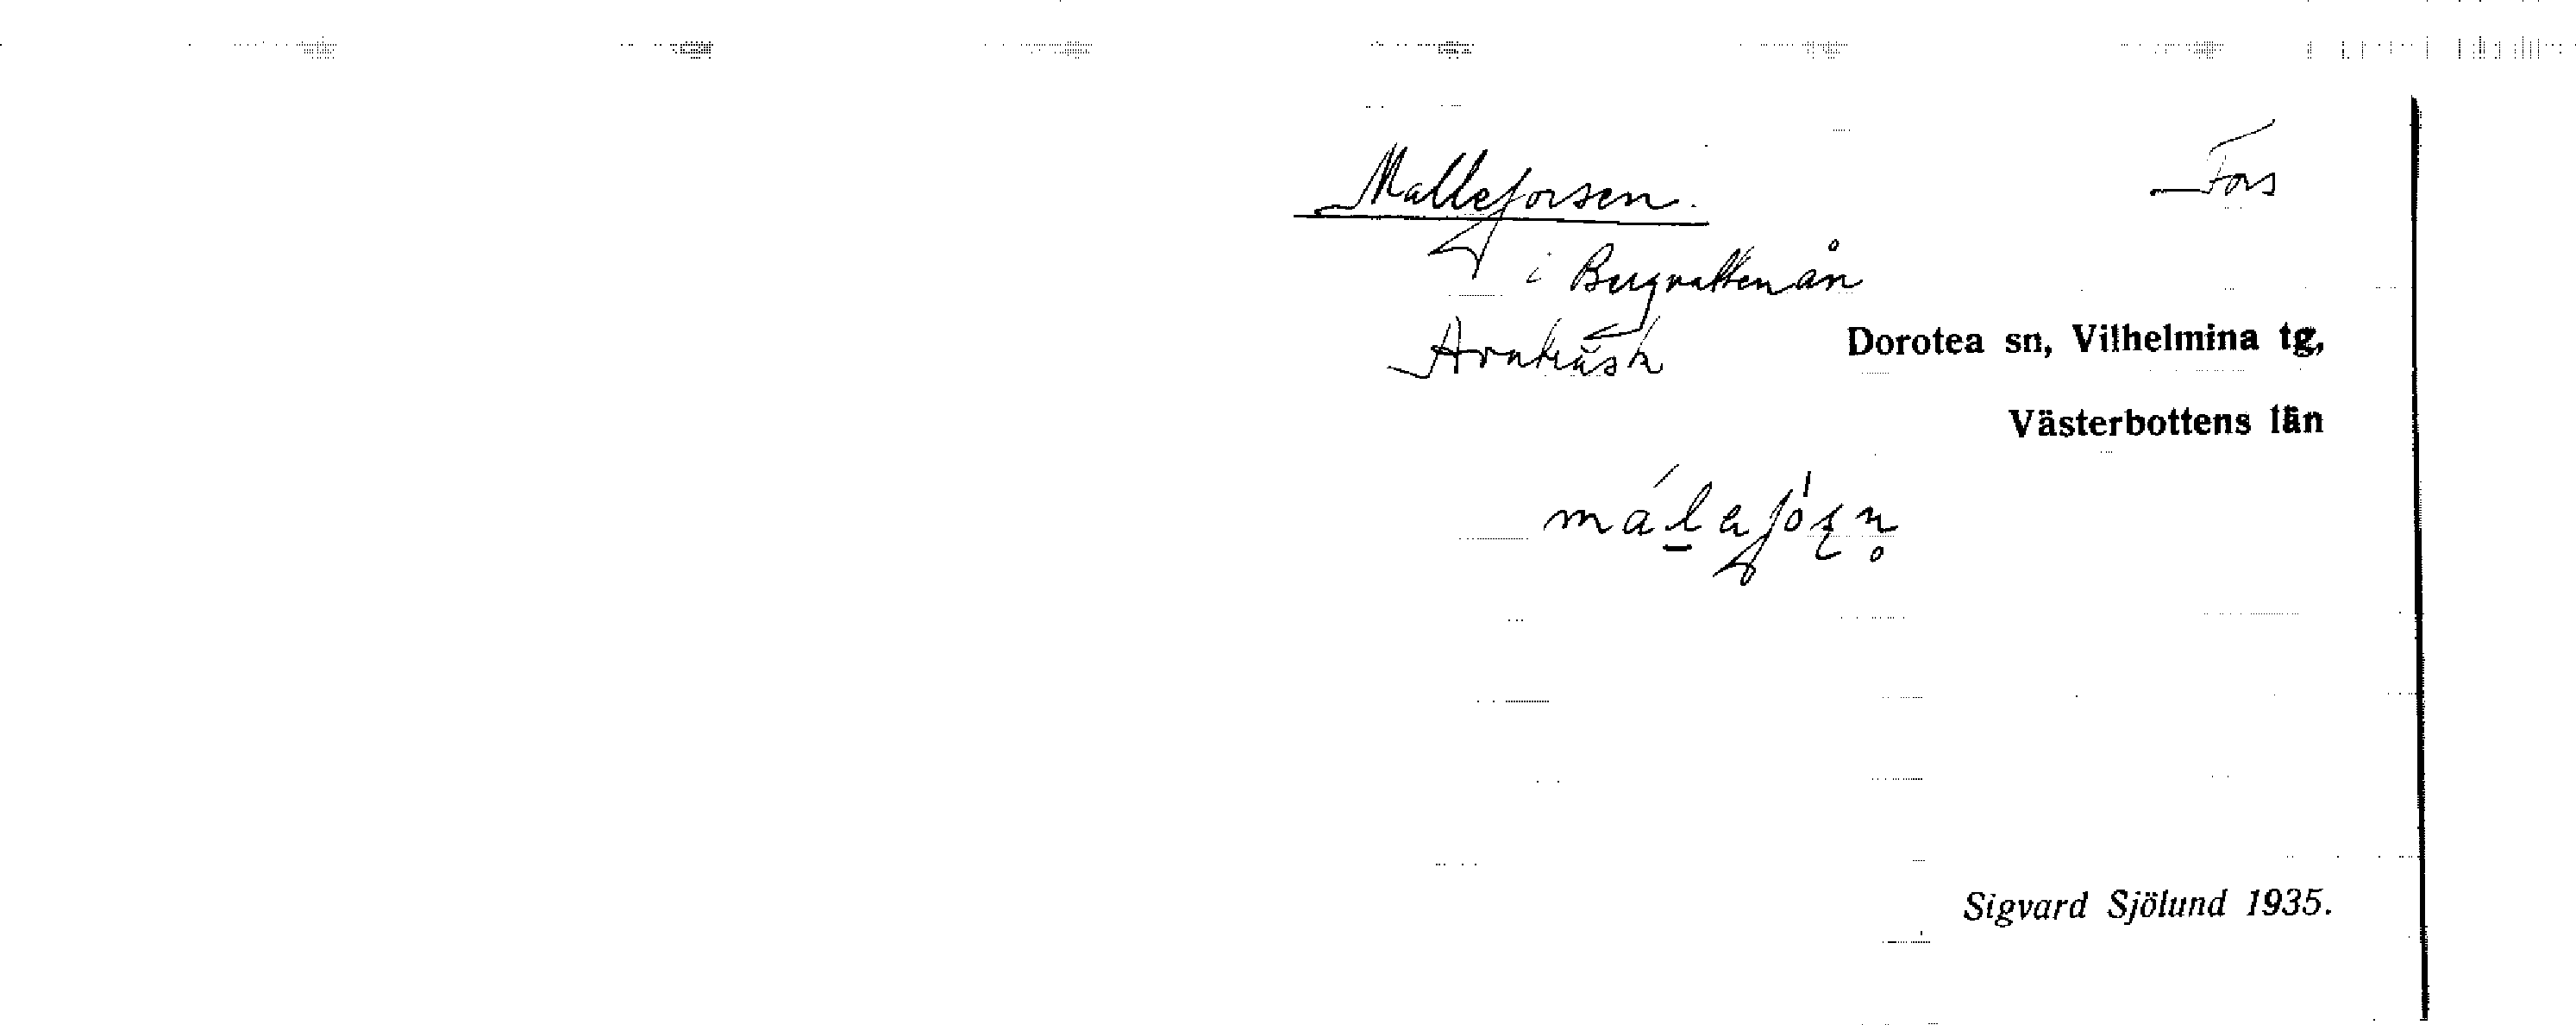 Malleforsen. Fors
i Bergvattenån
Avaträsk
Dorotea sn, Vilhelmina tg,
Västerbottens län
Sigvard Sjölund 1935.